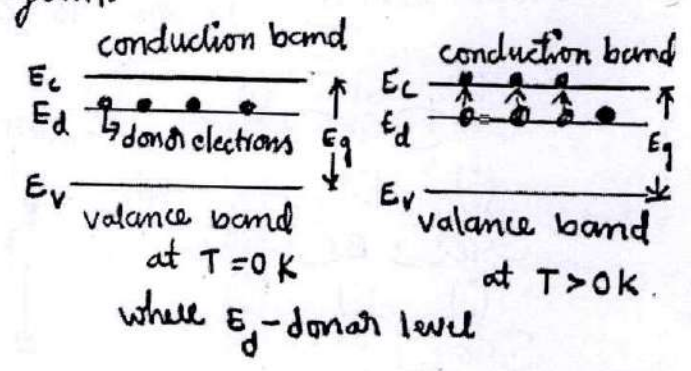 conduction band
Ec
Ed
↳ donor electrons
Eg
Ev
valance band
at T=0 K
conduction band
Ec
Ed
Eg
Ev
valance band
at T>0K.
where Ed-donar level